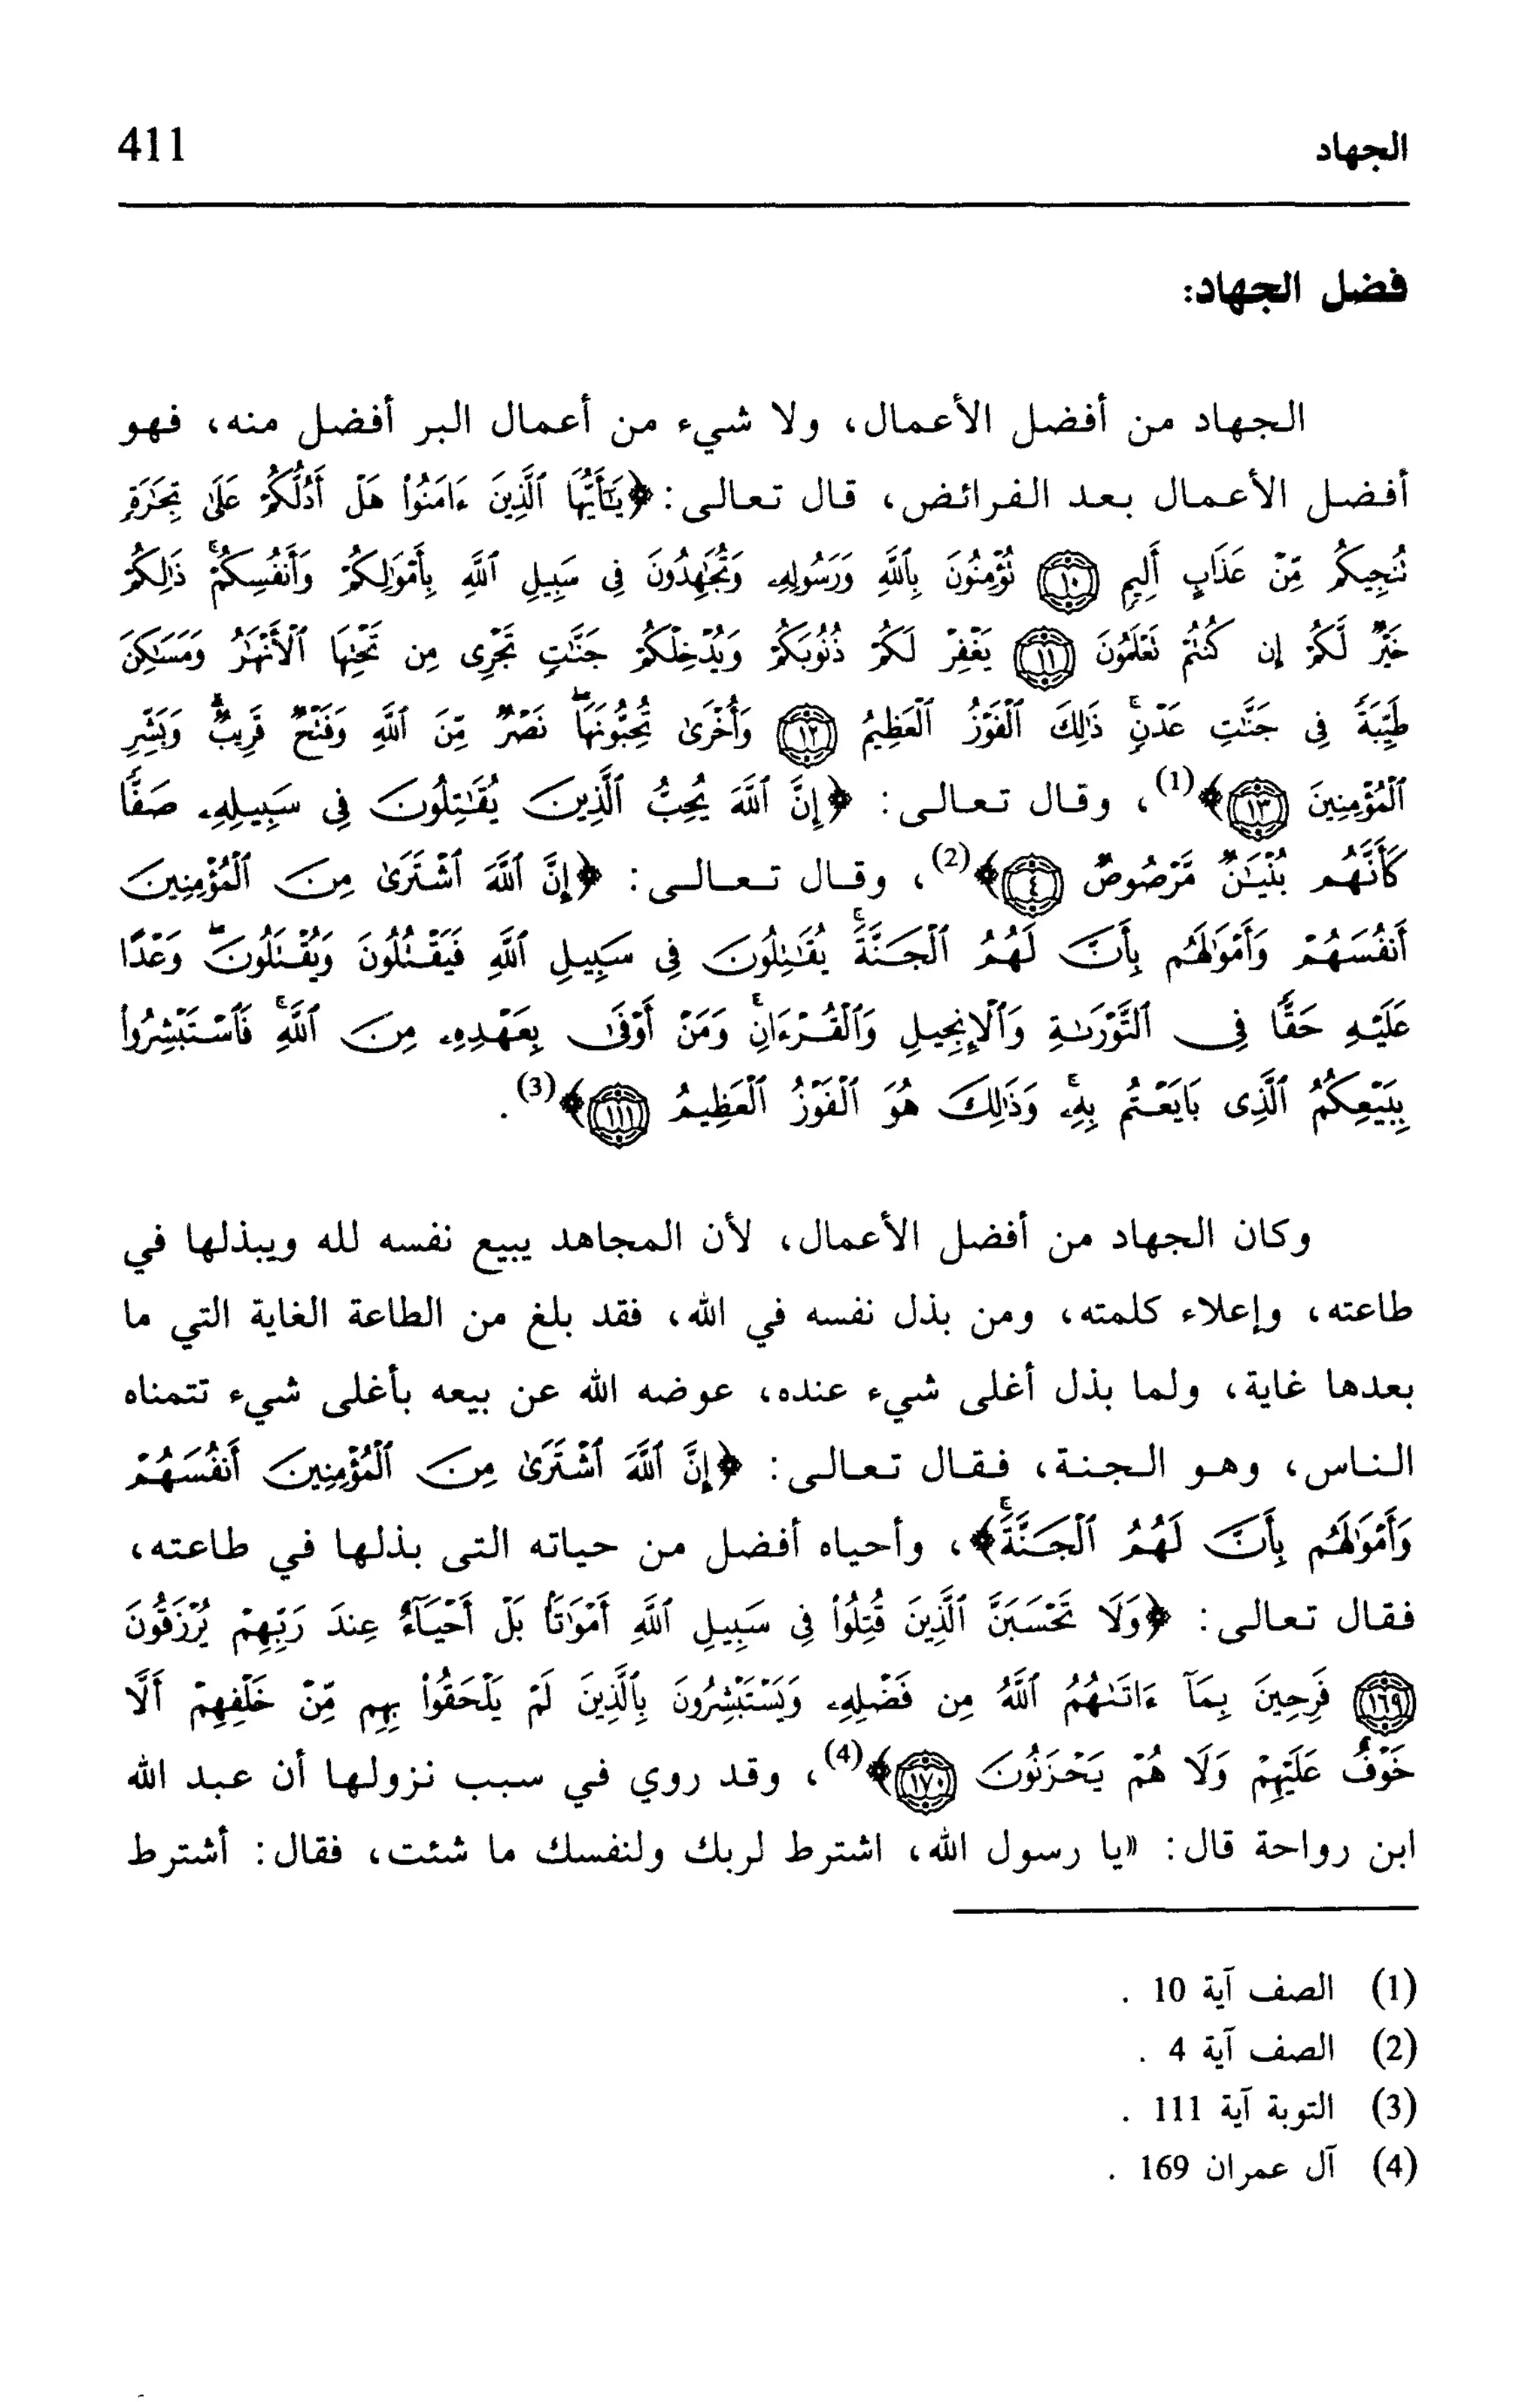 الجهاد 411
فضل الجهاد:
الجهاد من أفضل الأعمال، ولا شيء من أعمال البر أفضل منه، فهو
أفضل الأعمال بعد الفرائض، قال تعالى: ﴿يَٰٓأَيُّهَا ٱلَّذِينَ ءَامَنُوا۟ هَلْ أَدُلُّكُمْ عَلَىٰ تِجَٰرَةٍ
تُنجِيكُم مِّنْ عَذَابٍ أَلِيمٍ ۝١٠ تُؤْمِنُونَ بِٱللَّهِ وَرَسُولِهِۦ وَتُجَٰهِدُونَ فِى سَبِيلِ ٱللَّهِ بِأَمْوَٰلِكُمْ وَأَنفُسِكُمْ ۚ ذَٰلِكُمْ
خَيْرٌ لَّكُمْ إِن كُنتُمْ تَعْلَمُونَ ۝١١ يَغْفِرْ لَكُمْ ذُنُوبَكُمْ وَيُدْخِلْكُمْ جَنَّٰتٍ تَجْرِى مِن تَحْتِهَا ٱلْأَنْهَٰرُ وَمَسَٰكِنَ
طَيِّبَةً فِى جَنَّٰتِ عَدْنٍ ۚ ذَٰلِكَ ٱلْفَوْزُ ٱلْعَظِيمُ ۝١٢ وَأُخْرَىٰ تُحِبُّونَهَا ۖ نَصْرٌ مِّنَ ٱللَّهِ وَفَتْحٌ قَرِيبٌ ۗ وَبَشِّرِ
ٱلْمُؤْمِنِينَ ۝١٣﴾(1)، وقال تعالى: ﴿إِنَّ ٱللَّهَ يُحِبُّ ٱلَّذِينَ يُقَٰتِلُونَ فِى سَبِيلِهِۦ صَفًّا
كَأَنَّهُم بُنْيَٰنٌ مَّرْصُوصٌ ۝٤﴾(2)، وقال تعالى: ﴿إِنَّ ٱللَّهَ ٱشْتَرَىٰ مِنَ ٱلْمُؤْمِنِينَ
أَنفُسَهُمْ وَأَمْوَٰلَهُم بِأَنَّ لَهُمُ ٱلْجَنَّةَ ۚ يُقَٰتِلُونَ فِى سَبِيلِ ٱللَّهِ فَيَقْتُلُونَ وَيُقْتَلُونَ ۖ وَعْدًا
عَلَيْهِ حَقًّا فِى ٱلتَّوْرَىٰةِ وَٱلْإِنجِيلِ وَٱلْقُرْءَانِ ۚ وَمَنْ أَوْفَىٰ بِعَهْدِهِۦ مِنَ ٱللَّهِ ۚ فَٱسْتَبْشِرُوا۟
بِبَيْعِكُمُ ٱلَّذِى بَايَعْتُم بِهِۦ ۚ وَذَٰلِكَ هُوَ ٱلْفَوْزُ ٱلْعَظِيمُ ۝١١١﴾(3).
وكان الجهاد من أفضل الأعمال، لأن المجاهد يبيع نفسه لله ويبذلها في
طاعته، وإعلاء كلمته، ومن بذل نفسه في الله، فقد بلغ من الطاعة الغاية التي ما
بعدها غاية، ولما بذل أغلى شيء عنده، عوضه الله عن بيعه بأغلى شيء تتمناه
الناس، وهو الجنة، فقال تعالى: ﴿إِنَّ ٱللَّهَ ٱشْتَرَىٰ مِنَ ٱلْمُؤْمِنِينَ أَنفُسَهُمْ
وَأَمْوَٰلَهُم بِأَنَّ لَهُمُ ٱلْجَنَّةَ ۚ﴾، وأحياه أفضل من حياته التى بذلها في طاعته،
فقال تعالى: ﴿وَلَا تَحْسَبَنَّ ٱلَّذِينَ قُتِلُوا۟ فِى سَبِيلِ ٱللَّهِ أَمْوَٰتًۢا ۚ بَلْ أَحْيَآءٌ عِندَ رَبِّهِمْ يُرْزَقُونَ
۝١٦٩ فَرِحِينَ بِمَآ ءَاتَىٰهُمُ ٱللَّهُ مِن فَضْلِهِۦ وَيَسْتَبْشِرُونَ بِٱلَّذِينَ لَمْ يَلْحَقُوا۟ بِهِم مِّنْ خَلْفِهِمْ أَلَّا
خَوْفٌ عَلَيْهِمْ وَلَا هُمْ يَحْزَنُونَ ۝١٧٠﴾(4)، وقد روي في سبب نزولها أن عبد الله
ابن رواحة قال: «يا رسول الله، اشترط لربك ولنفسك ما شئت، فقال: أشترط
(1) الصف آية 10 .
(2) الصف آية 4 .
(3) التوبة آية 111 .
(4) آل عمران 169 .